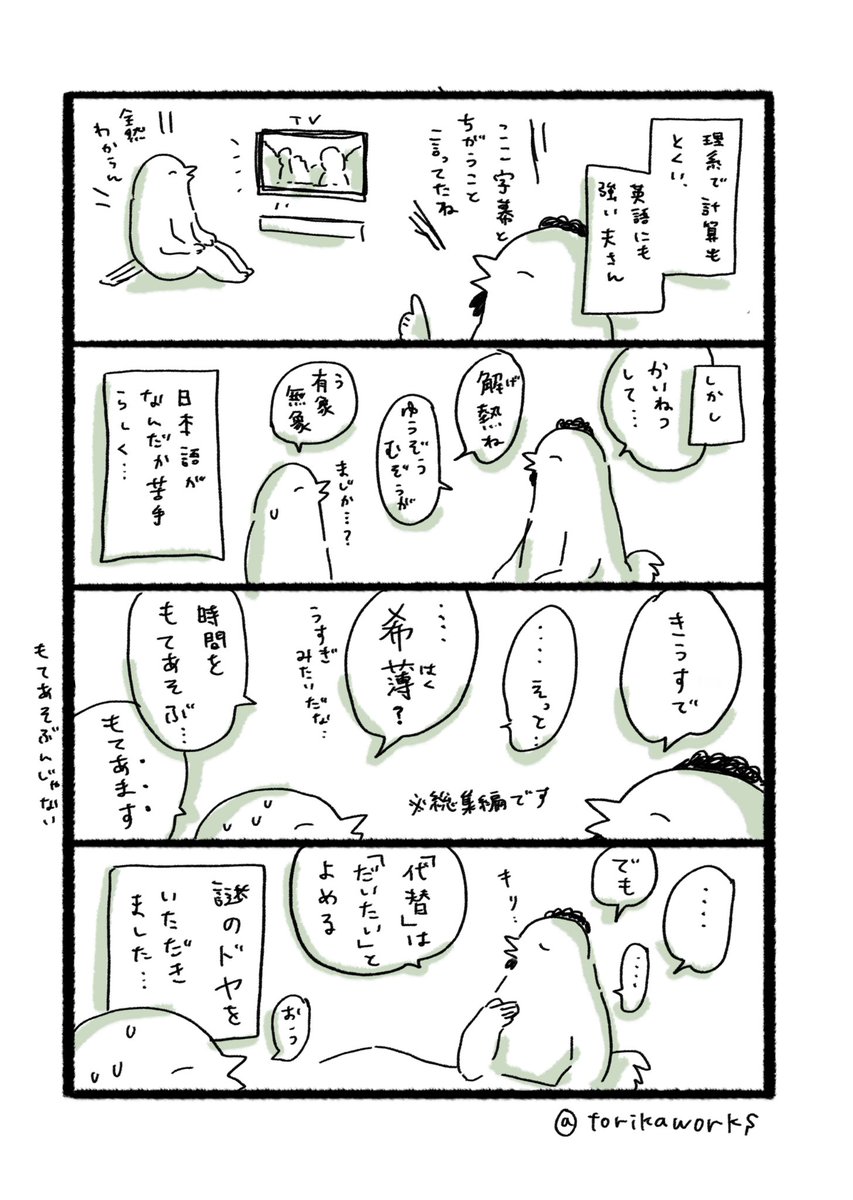 理系で計算も
とくい、
英語にも
強い夫さん
ここ字幕と
ちがうこと
言ってたね
TV
全然
わからん
しかし
かいねつ
して…
解熱ね
げ
ゆうぞう
むぞうが
有象
無象
う
まじか…?
日本語が
なんだか苦手
らしく…
きうすで
‥‥えっと…
‥‥
希薄?
はく
うすぎ
みたいだな…
時間を
もてあそぶ…
もてあます
もてあそぶんじゃない
※総集編です
‥‥
でも
‥‥
キリ…
「代替」は
「だいたい」と
よめる
おっ
謎のドヤを
いただき
ました…
@torikaworks